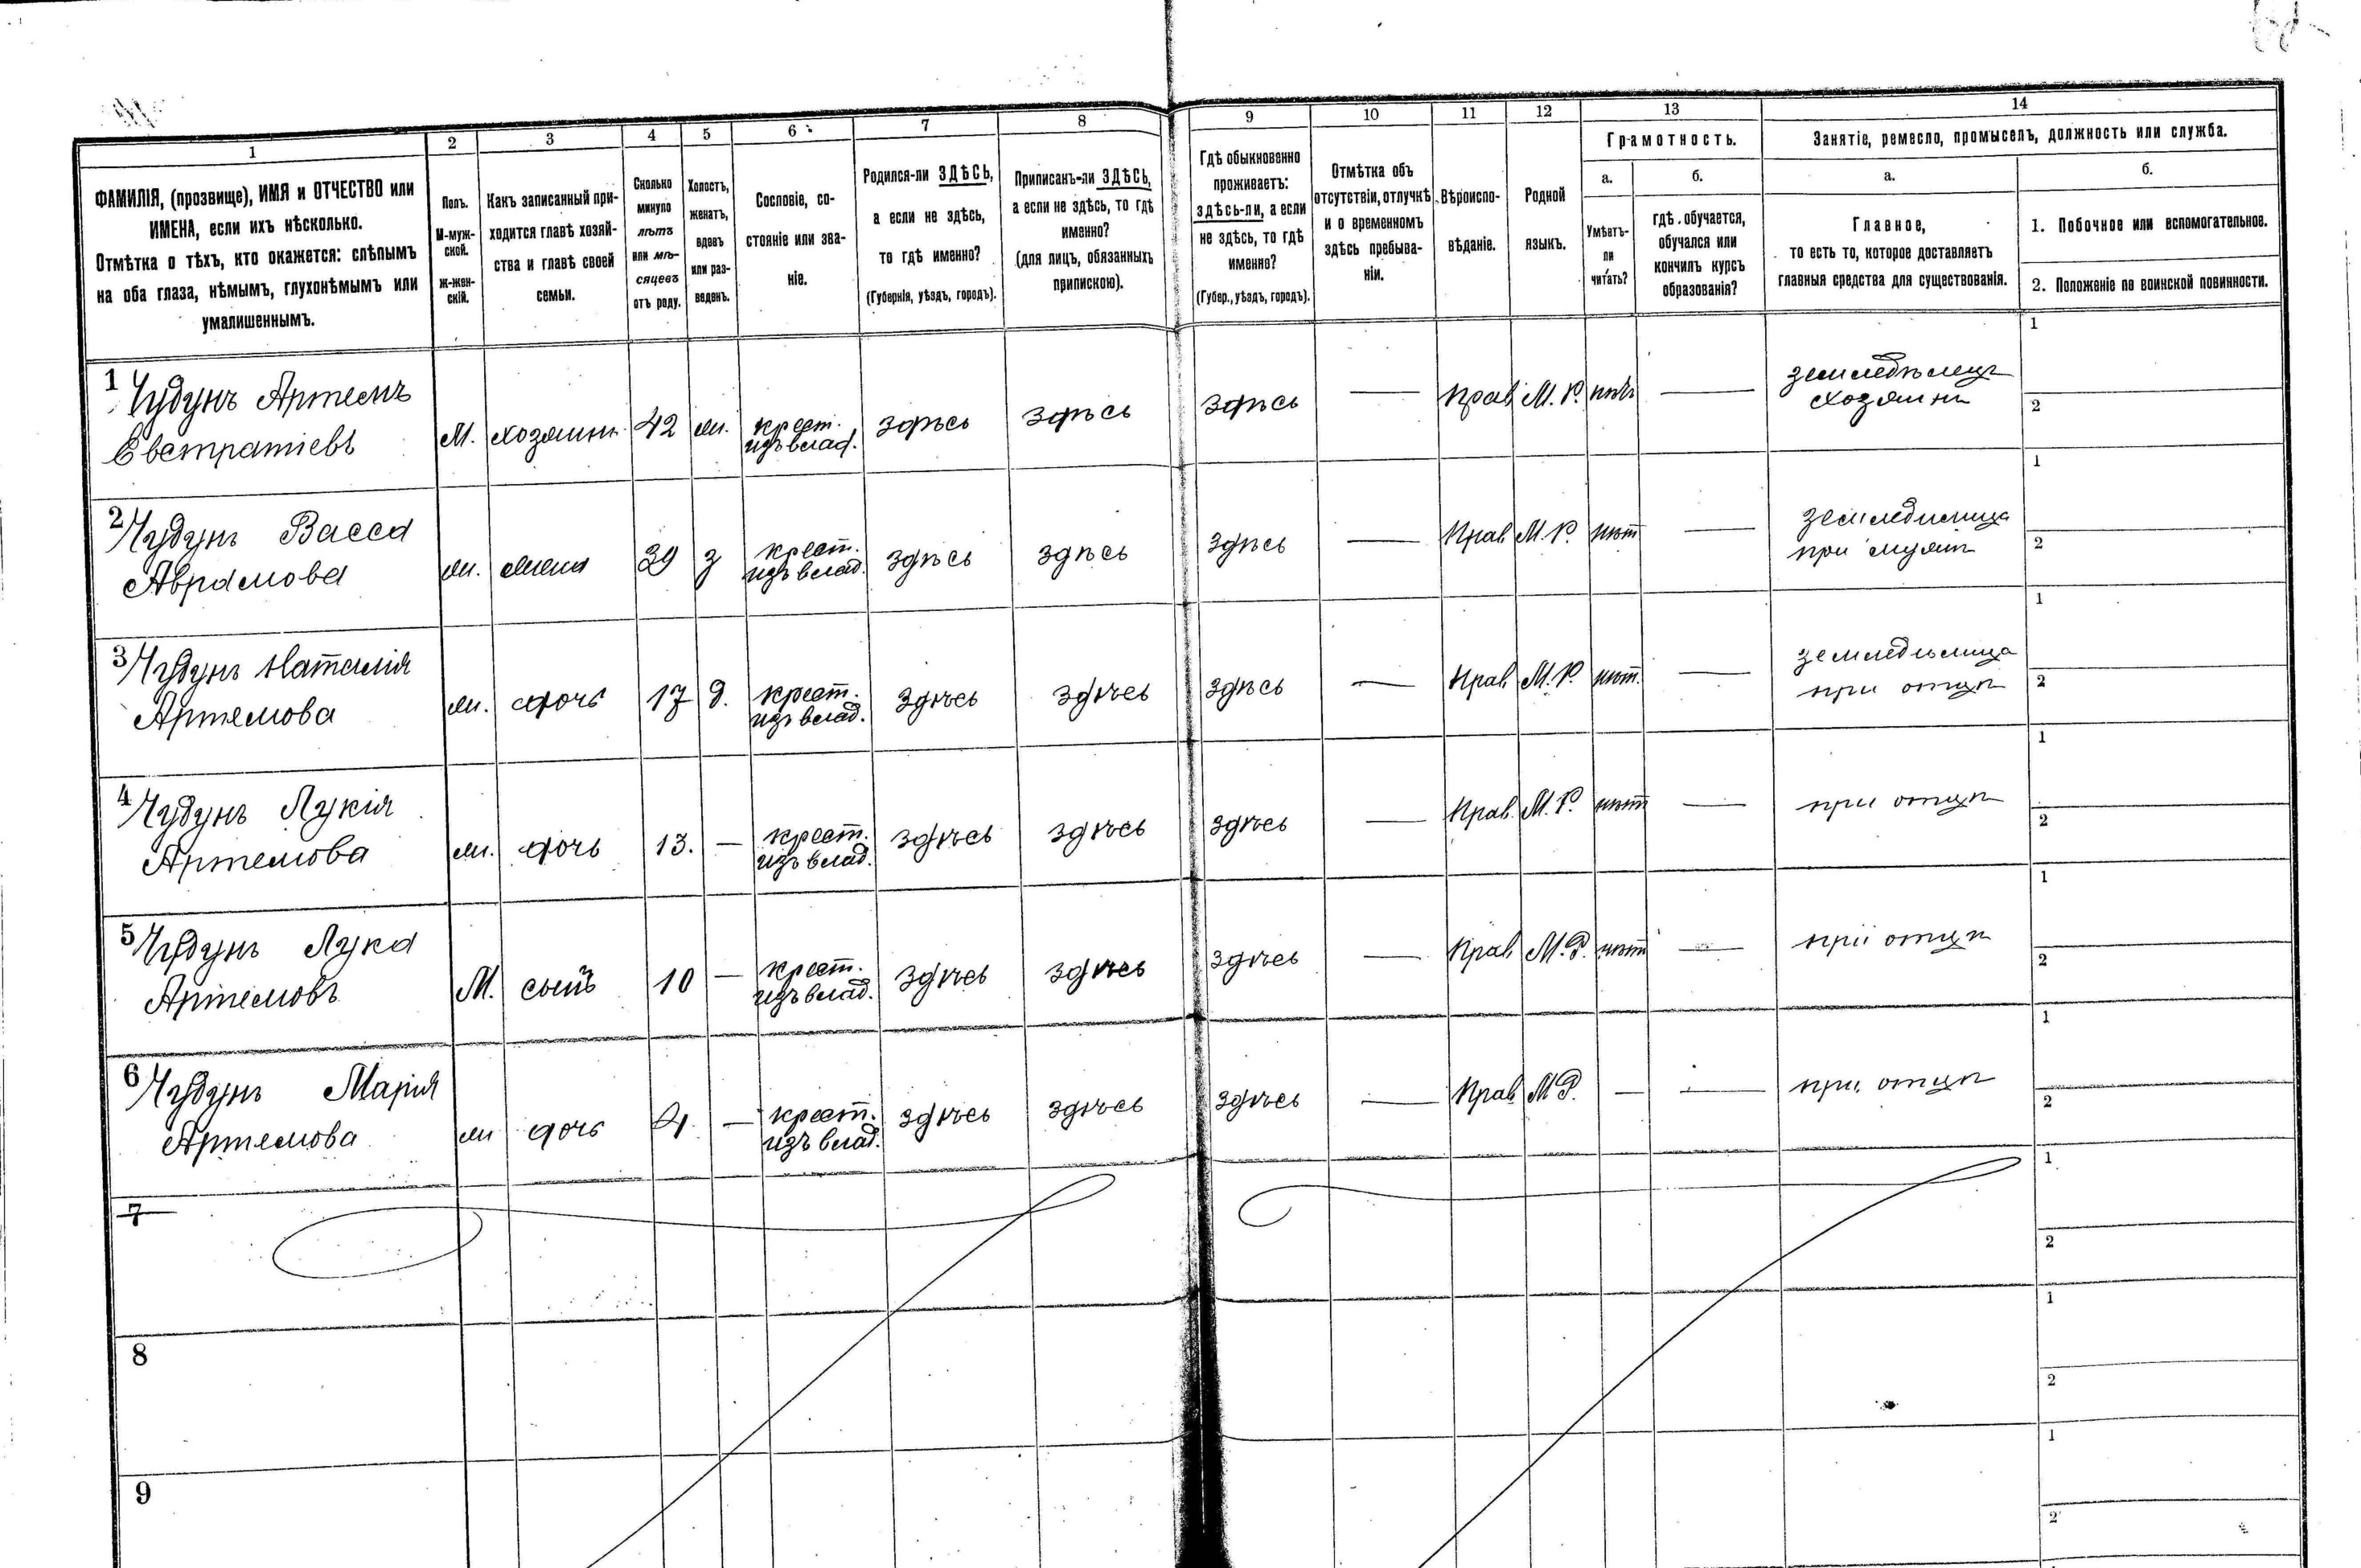 1 2 3 4 5 6 7 8 9 10 11 12 13 14
ФАМИЛІЯ, (прозвище), ИМЯ и ОТЧЕСТВО или
ИМЕНА, если ихъ нѣсколько.
Отмѣтка о тѣхъ, кто окажется: слѣпымъ
на оба глаза, нѣмымъ, глухонѣмымъ или
умалишеннымъ.
Полъ.
М-муж-
ской.
ж-жен-
скій.
Какъ записанный при-
ходится главѣ хозяй-
ства и главѣ своей
семьи.
Сколько
минуло
лѣтъ
или мѣ-
сяцевъ
отъ роду.
Холостъ,
женатъ,
вдовъ
или раз-
веденъ.
Сословіе, со-
стояніе или зва-
ніе.
Родился-ли ЗДѢСЬ,
а если не здѣсь,
то гдѣ именно?
(Губернія, уѣздъ, городъ).
Приписанъ-ли ЗДѢСЬ,
а если не здѣсь, то гдѣ
именно?
(для лицъ, обязанныхъ
припискою).
Гдѣ обыкновенно
проживаетъ:
здѣсь-ли, а если
не здѣсь, то гдѣ
именно?
(Губер., уѣздъ, городъ).
Отмѣтка объ
отсутствіи, отлучкѣ
и о временномъ
здѣсь пребыва-
ніи.
Вѣроиспо-
вѣданіе.
Родной
языкъ.
Грамотность.
а.
Умѣетъ-
ли
читать?
б.
гдѣ обучается,
обучался или
кончилъ курсъ
образованія?
Занятіе, ремесло, промыселъ, должность или служба.
а.
Главное,
то есть то, которое доставляетъ
главныя средства для существованія.
б.
1. Побочное или вспомогательное.
2. Положеніе по воинской повинности.
1 Чудунъ Артемъ
Евстратіевъ
М. хозяинъ 42 ж. крест.
изъ влад. здѣсь здѣсь здѣсь — Прав М. Р. нѣтъ — земледѣлецъ
хозяинъ
1
2
2 Чудунъ Васса
Аврамова
ж. жена 39 з крест.
изъ влад. здѣсь здѣсь здѣсь — Прав М. Р. нѣт — земледѣлица
при мужѣ
1
2
3 Чудунъ Наталія
Артемова
ж. дочь 17 д. крест.
изъ влад. здѣсь здѣсь здѣсь — Прав М. Р. нѣт. — земледѣлица
при отцѣ
1
2
4 Чудунъ Лукія
Артемова
ж. дочь 13. — крест.
изъ влад. здѣсь здѣсь здѣсь — Прав. М. Р. нѣт — при отцѣ
1
2
5 Чудунъ Лука
Артемовъ
М. сынъ 10 — крест.
изъ влад. здѣсь здѣсь здѣсь — Прав М. Р. нѣт — при отцѣ
1
2
6 Чудунъ Марія
Артемова
ж дочь 4 — крест.
изъ влад. здѣсь здѣсь здѣсь — Прав М Р. — — при отцѣ
1
2
7
1
2
8
1
2
9
1
2